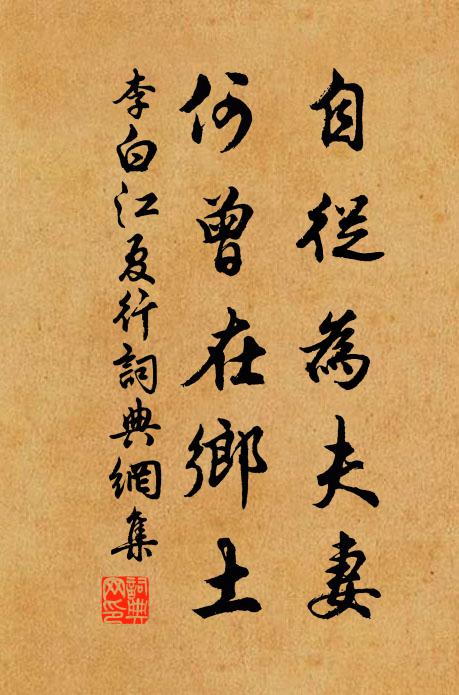 自從為夫妻
何曾在鄉土
李白江夏行詞典網集
詞典
网印